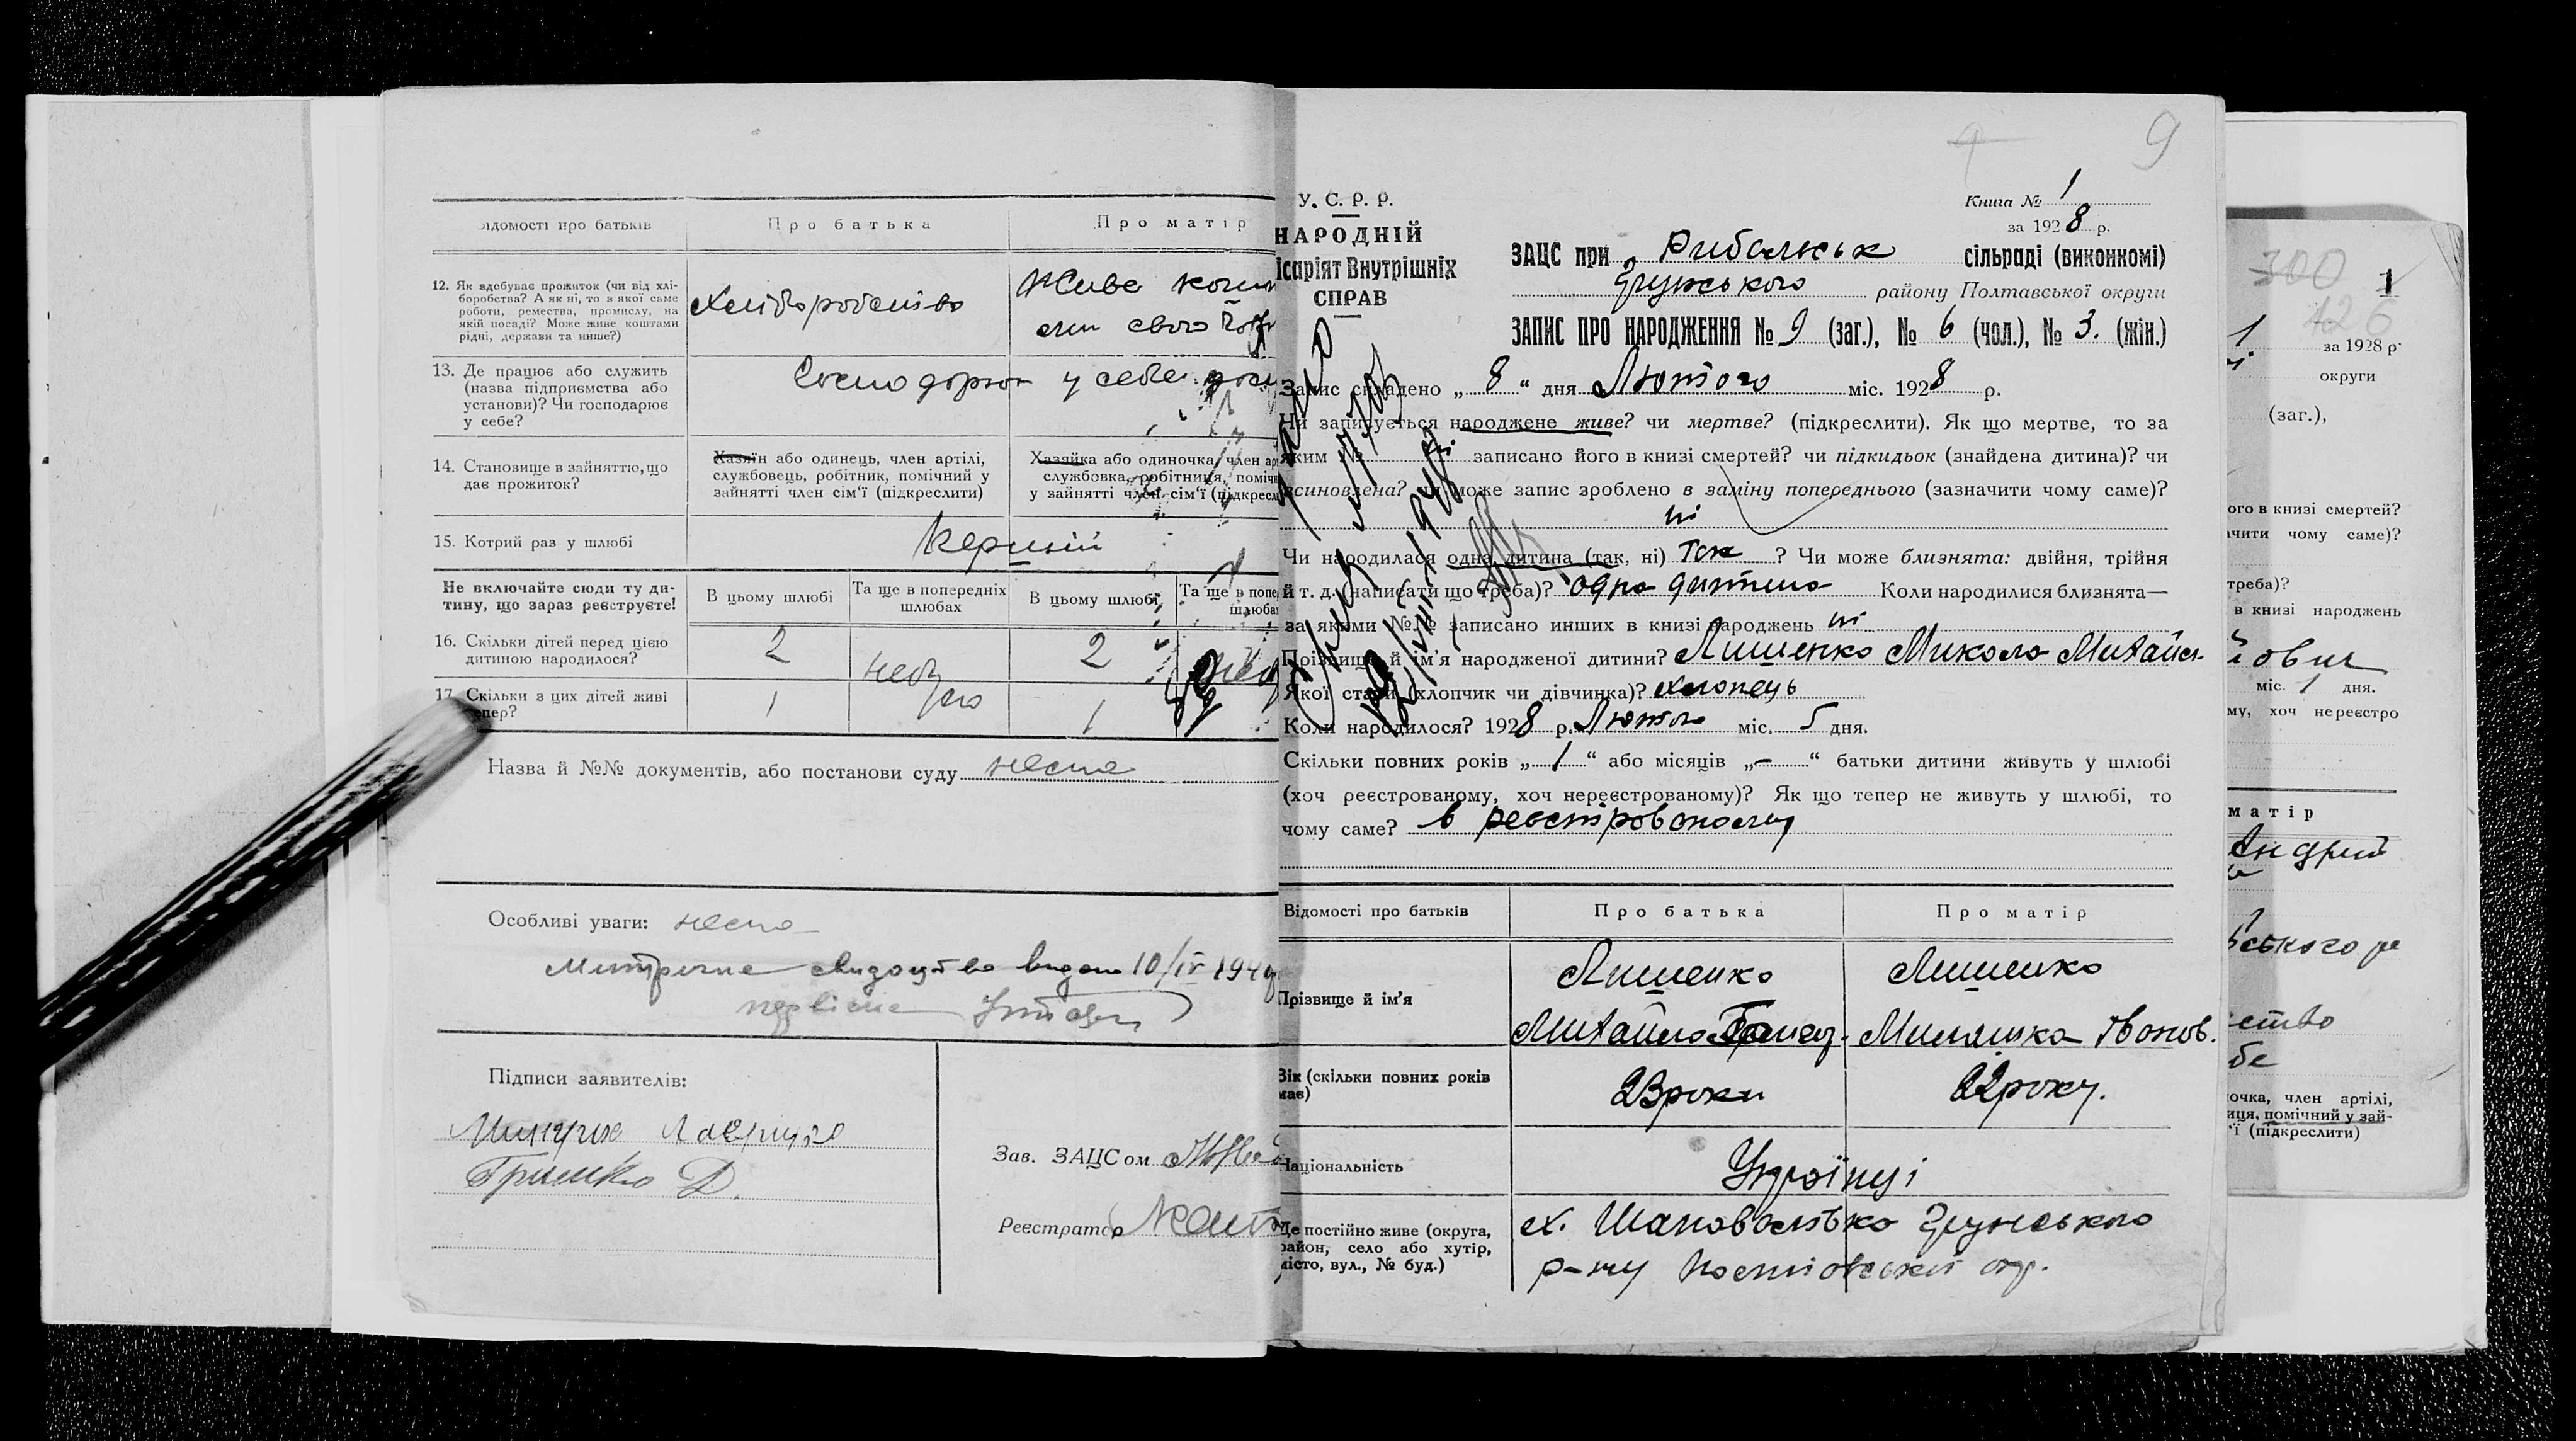 відомості про батьків
Про батька
Про матір
12. Як здобуває прожиток (чи від хлі-
боробства? А як ні, то з якої саме
роботи, ремества, промислу, на
якій посаді? Може живе коштами
рідні, держави та инше?)
Хліборобство
Живе кош
ми свого
13. Де працює або служить
(назва підприємства або
установи)? Чи господарює
у себе?
у себе
14. Становище в зайняттю, що
дає прожиток?
Хазяїн або одинець, член артілі,
службовець, робітник, помічний у
зайнятті член сім'ї (підкреслити)
Хазяйка або одиночка, член ар
службовка, робітниця, поміч
у зайнятті член сім'ї (підкресл
15. Котрий раз у шлюбі
Перший
Не включайте сюди ту ди-
тину, що зараз реєструєте!
В цьому шлюбі
Та ще в попередніх
шлюбах
В цьому шлюбі
Та ще в попе
шлюбах
16. Скільки дітей перед цією
дитиною народилося?
2
2
17. Скільки з цих дітей живі
тепер?
1
1
Назва й №№ документів, або постанови суду нема
Особливі уваги: нема
Метричне свидоцтво видано 10/IV 194
Підписи заявителів:
Гришко Д.
Зав. ЗАЦСом
Реєстратор
9
У. С. Р. Р.
НАРОДНІЙ
ісаріят Внутрішніх
СПРАВ
Книга № 1
за 1928 р.
ЗАЦС при Рибальськ сільраді (виконкомі)
Грунського району Полтавської округи
ЗАПИС ПРО НАРОДЖЕННЯ № 9 (заг.), № 6 (чол.), № 3. (жін.)
Запис складено „8“ дня Лютого міс. 1928 р.
Чи записується народжене живе? чи мертве? (підкреслити). Як що мертве, то за
яким № ні записано його в книзі смертей? чи підкидьок (знайдена дитина)? чи
всиновлена? чи може запис зроблено в заміну попереднього (зазначити чому саме)?
ні
Чи народилася одна дитина (так, ні) так ? Чи може близнята: двійня, трійня
й т. д. (написати що треба)? одна дитина Коли народилися близнята—
за якими №№ записано инших в книзі народжень ні
Прізвище й ім'я народженої дитини? Лишенко Микола Михайл.
Якої стати (хлопчик чи дівчинка)? хлопець
Коли народилося? 1928 р. Лютого міс. 5 дня.
Скільки повних років „1“ або місяців „–“ батьки дитини живуть у шлюбі
(хоч реєстрованому, хоч нереєстрованому)? Як що тепер не живуть у шлюбі, то
чому саме? в реєстрованому
Відомості про батьків
Про батька
Про матір
Прізвище й ім'я
Лишенко
Михайло
Лишенко
Івонов.
Вік (скільки повних років
має)
23 роки
22 року.
Національність
Українці
Де постійно живе (округа,
район, село або хутір,
місто, вул., № буд.)
х. Шаповалівка Грунського
р-ну Полтавської окр.
300
1
126
1
за 1928 р.
округи
(заг.),
ого в книзі смертей?
чити чому саме)?
треба)?
в книзі народжень
міс. 1 дня.
му, хоч нереєстро
матір
ського
ство
бе
очка, член артілі,
иця, помічний у зай-
'ї (підкреслити)